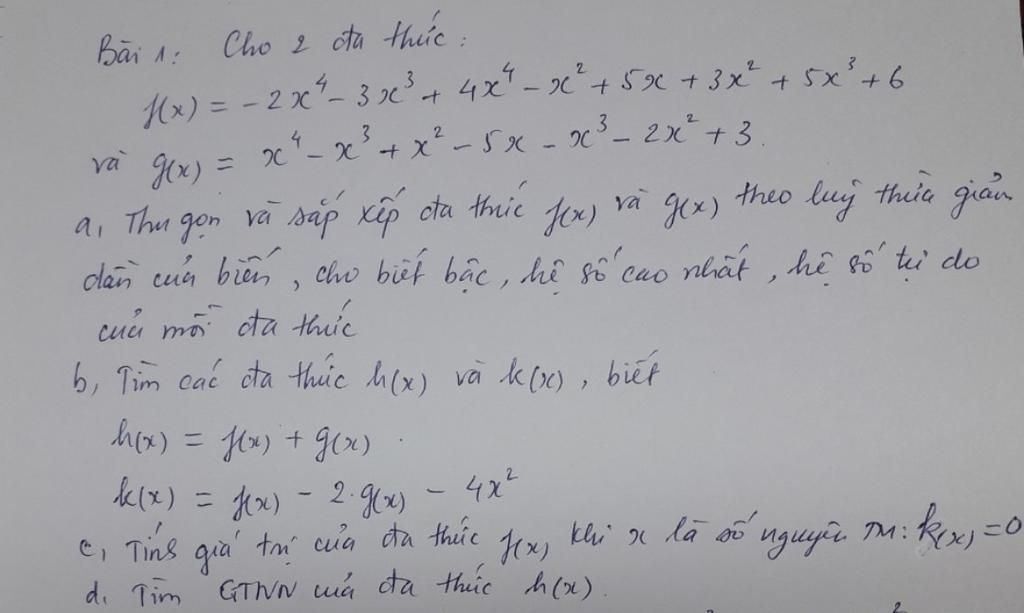 Bài 1: Cho 2 đa thức:
f(x) = - 2x⁴ - 3x³ + 4x⁴ - x² + 5x + 3x² + 5x³ + 6
và g(x) = x⁴ - x³ + x² - 5x - x³ - 2x² + 3.
a, Thu gọn và sắp xếp đa thức f(x) và g(x) theo luỹ thừa giảm
dần của biến, cho biết bậc, hệ số cao nhất, hệ số tự do
của mỗi đa thức
b, Tìm các đa thức h(x) và k(x), biết
h(x) = f(x) + g(x).
k(x) = f(x) - 2.g(x) - 4x²
c, Tính giá trị của đa thức f(x) khi x là số nguyên TM: k(x) = 0
d. Tìm GTNN của đa thức h(x).